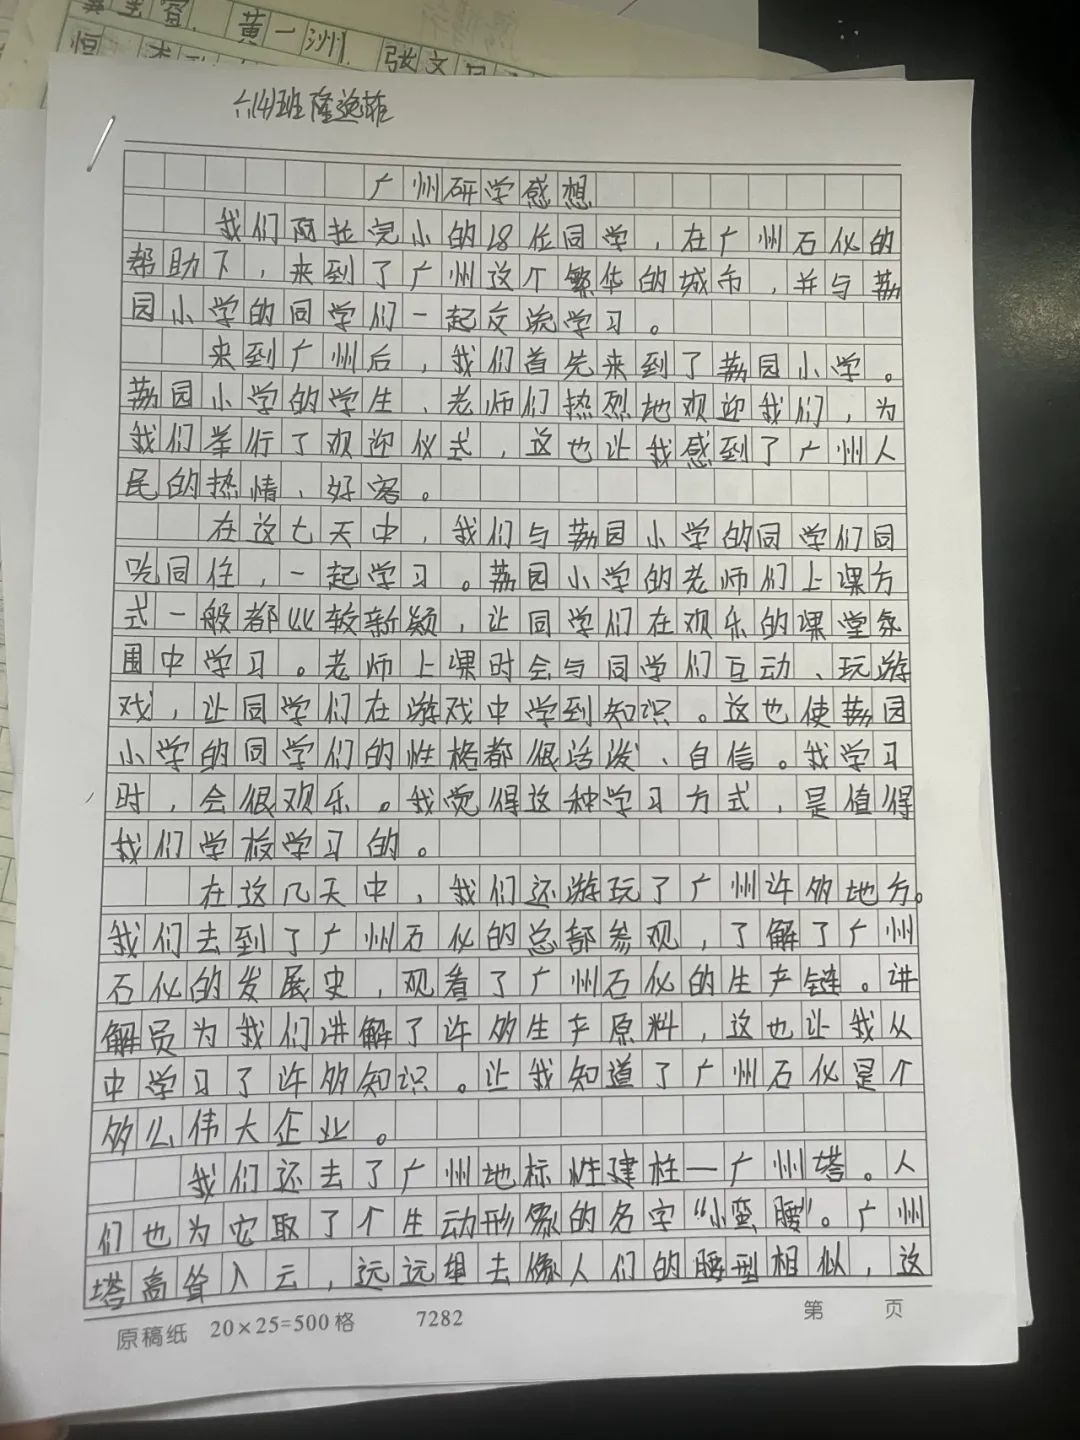 黄一洲
张文
六(4)班
广州研学感想
我们阿拉完小的18位同学，在广州石化的
帮助下，来到了广州这个繁华的城市，并与荔
园小学的同学们一起交流学习。
来到广州后，我们首先来到了荔园小学。
荔园小学的学生、老师们热烈地欢迎我们，为
我们举行了欢迎仪式，这也让我感到了广州人
民的热情、好客。
在这七天中，我们与荔园小学的同学们同
吃同住，一起学习。荔园小学的老师们上课方
式一般都比较新颖，让同学们在欢乐的课堂氛
围中学习。老师上课时会与同学们互动、玩游
戏，让同学们在游戏中学到知识。这也使荔园
小学的同学们的性格都很活泼、自信。我学习
时，会很欢乐。我觉得这种学习方式，是值得
我们学校学习的。
在这几天中，我们还游玩了广州许多地方。
我们去到了广州石化的总部参观，了解了广州
石化的发展史，观看了广州石化的生产链。讲
解员为我们讲解了许多生产原料，这也让我从
中学习了许多知识。让我知道了广州石化是个
多么伟大企业。
我们还去了广州地标性建柱—广州塔。人
们也为它取了个生动形象的名字“小蛮腰”。广州
塔高耸入云，远远望去像人们的腰型相似，这
原稿纸 20×25=500格 7282 第 页